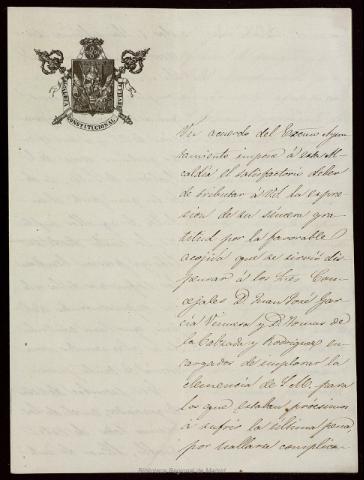 ALCALDIA CONSTITUCIONAL SEVILLA
Un acuerdo del Excmo Ayun-
tamiento impone á esta Al-
caldia el satisfactorio deber
de tributar á Vd. la espre-
sion de su sincera gra-
titud por la favorable
acojida que se sirvió dis-
pensar á los Sres Con-
cejales D. Juan José Gar-
cia Vinuesa y D. Tomas de
la Calzada y Rodriguez en-
cargados de implorar la
clemencia de S.M. para
los que estaban prócsimos
á sufrir la última pena,
por hallarse complica-
Biblioteca Regional de Madrid